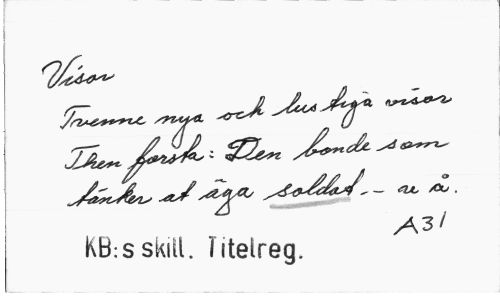 Visor
Tvenne nya och lustiga visor
Then forsta: Den bonde som
tänker at äga soldat.- u å.
A31
KB:s skill. Titelreg.